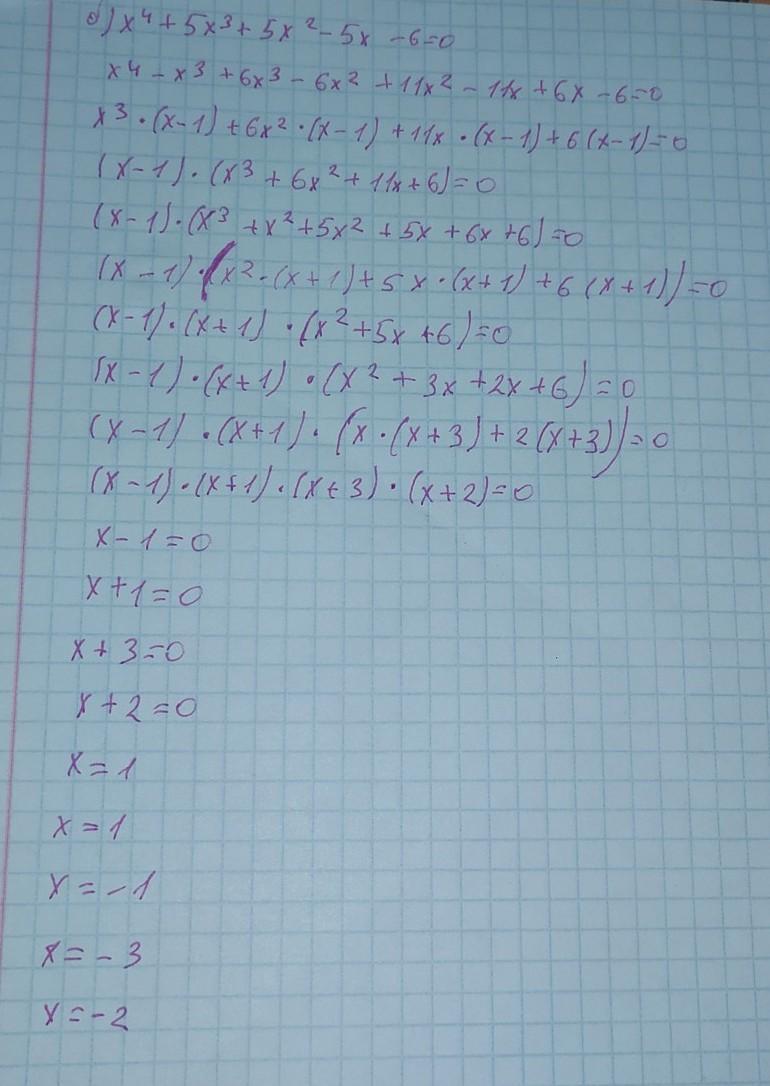 б) x⁴ + 5x³ + 5x² - 5x - 6=0
x⁴ - x³ + 6x³ - 6x² + 11x² - 11x + 6x - 6=0
x³ · (x-1) + 6x² · (x-1) + 11x · (x-1) + 6(x-1)=0
(x-1) · (x³ + 6x² + 11x + 6)=0
(x-1) · (x³ + x² + 5x² + 5x + 6x + 6)=0
(x-1) · (x² · (x+1) + 5x · (x+1) + 6(x+1))=0
(x-1) · (x+1) · (x² + 5x + 6)=0
(x-1) · (x+1) · (x² + 3x + 2x + 6)=0
(x-1) · (x+1) · (x · (x+3) + 2(x+3))=0
(x-1) · (x+1) · (x+3) · (x+2)=0
x-1=0
x+1=0
x+3=0
x+2=0
x=1
x=1
x=-1
x=-3
x=-2